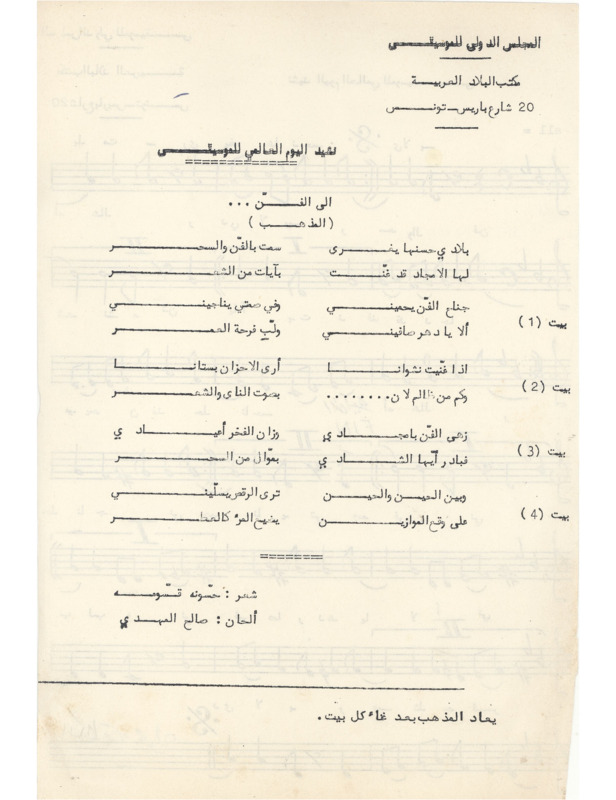 المجلس الدولي للموسيقى
مكتب البلاد العربية
20 شارع باريس - تونس
نشيد اليوم العالمي للموسيقى
الى الفن ...
(المذهب)
بلادي حسنها يغري سمت بالفن والسحر
لها الامجاد قد غنّت بآيات من الشعر
بيت (1)
جناح الفنّ يحميني وفي صمتي يناجيني
ألا يا دهر صافيني ولبّ فرحة العمر
بيت (2)
اذا غنّيت نشوانا أرى الاحزان بستانا
وكم من ظالم لان........ بصوت الناي والشعر
بيت (3)
زهى الفنّ بامجادي وزان الفخر أعيادي
فبادر أيّها الشادي بموّال من السحر
بيت (4)
وبين الحين والحين ترى الرقص يسلّيني
على وقع الموازين يضيع المرء كالعطر
شعر : حسّونه قسّومه
ألحان : صالح المهدي
يعاد المذهب بعد غاء كل بيت.